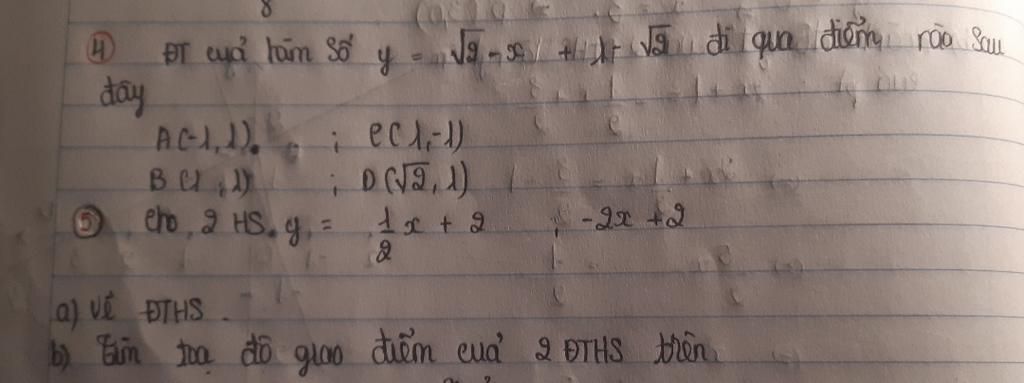 8
④ ĐT cuả hàm số y = √2 - x + 1 - √2 đi qua điểm nào sau
đây
A(-1, 1). ; C(1, -1)
B(1, 1) ; D(√2, 1)
⑤ cho 2 HS. y = 1/2 x + 2 ; -2x + 2
a) vẽ ĐTHS.
b) tìm toạ độ giao điểm cuả 2 ĐTHS trên